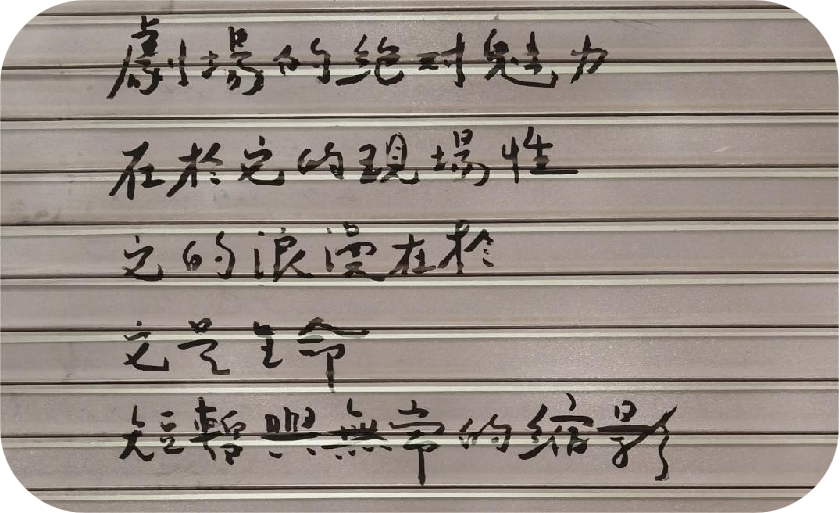 劇場的絶对魅力
在於它的現場性
它的浪漫在於
它是生命
短暫與無常的縮影